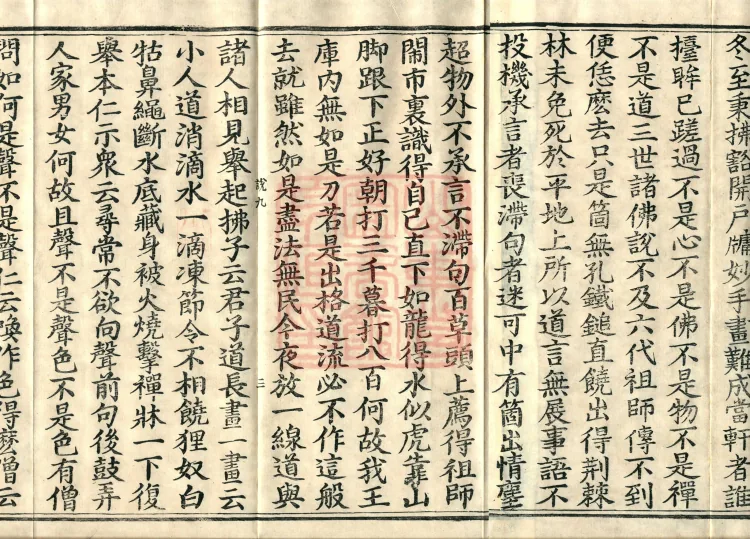 冬至秉拂豁開戶牖妙手畫難成當軒者誰
擡眸已蹉過不是心不是佛不是物不是禪
不是道三世諸佛說不及六代祖師傳不到
便恁麼去只是箇無孔鐵鎚直饒出得荆棘
林未免死於平地上所以道言無展事語不
投機承言者喪滯句者迷可中有箇出情塵
超物外不承言不滯句百草頭上薦得祖師
鬧市裏識得自己直下如龍得水似虎靠山
脚跟下正好朝打三千暮打八百何故我王
庫內無如是刀若是出格道流必不作這般
去就雖然如是盡法無民今夜放一線道與
說九 三
諸人相見舉起拂子云君子道長畫一畫云
小人道消滴水一滴凍節令不相饒狸奴白
牯鼻繩斷水底藏身被火燒擊禪牀一下復
舉本仁示衆云尋常不欲向聲前句後鼓弄
人家男女何故且聲不是聲色不是色有僧
問如何是聲不是聲仁云喚作色得麼僧云